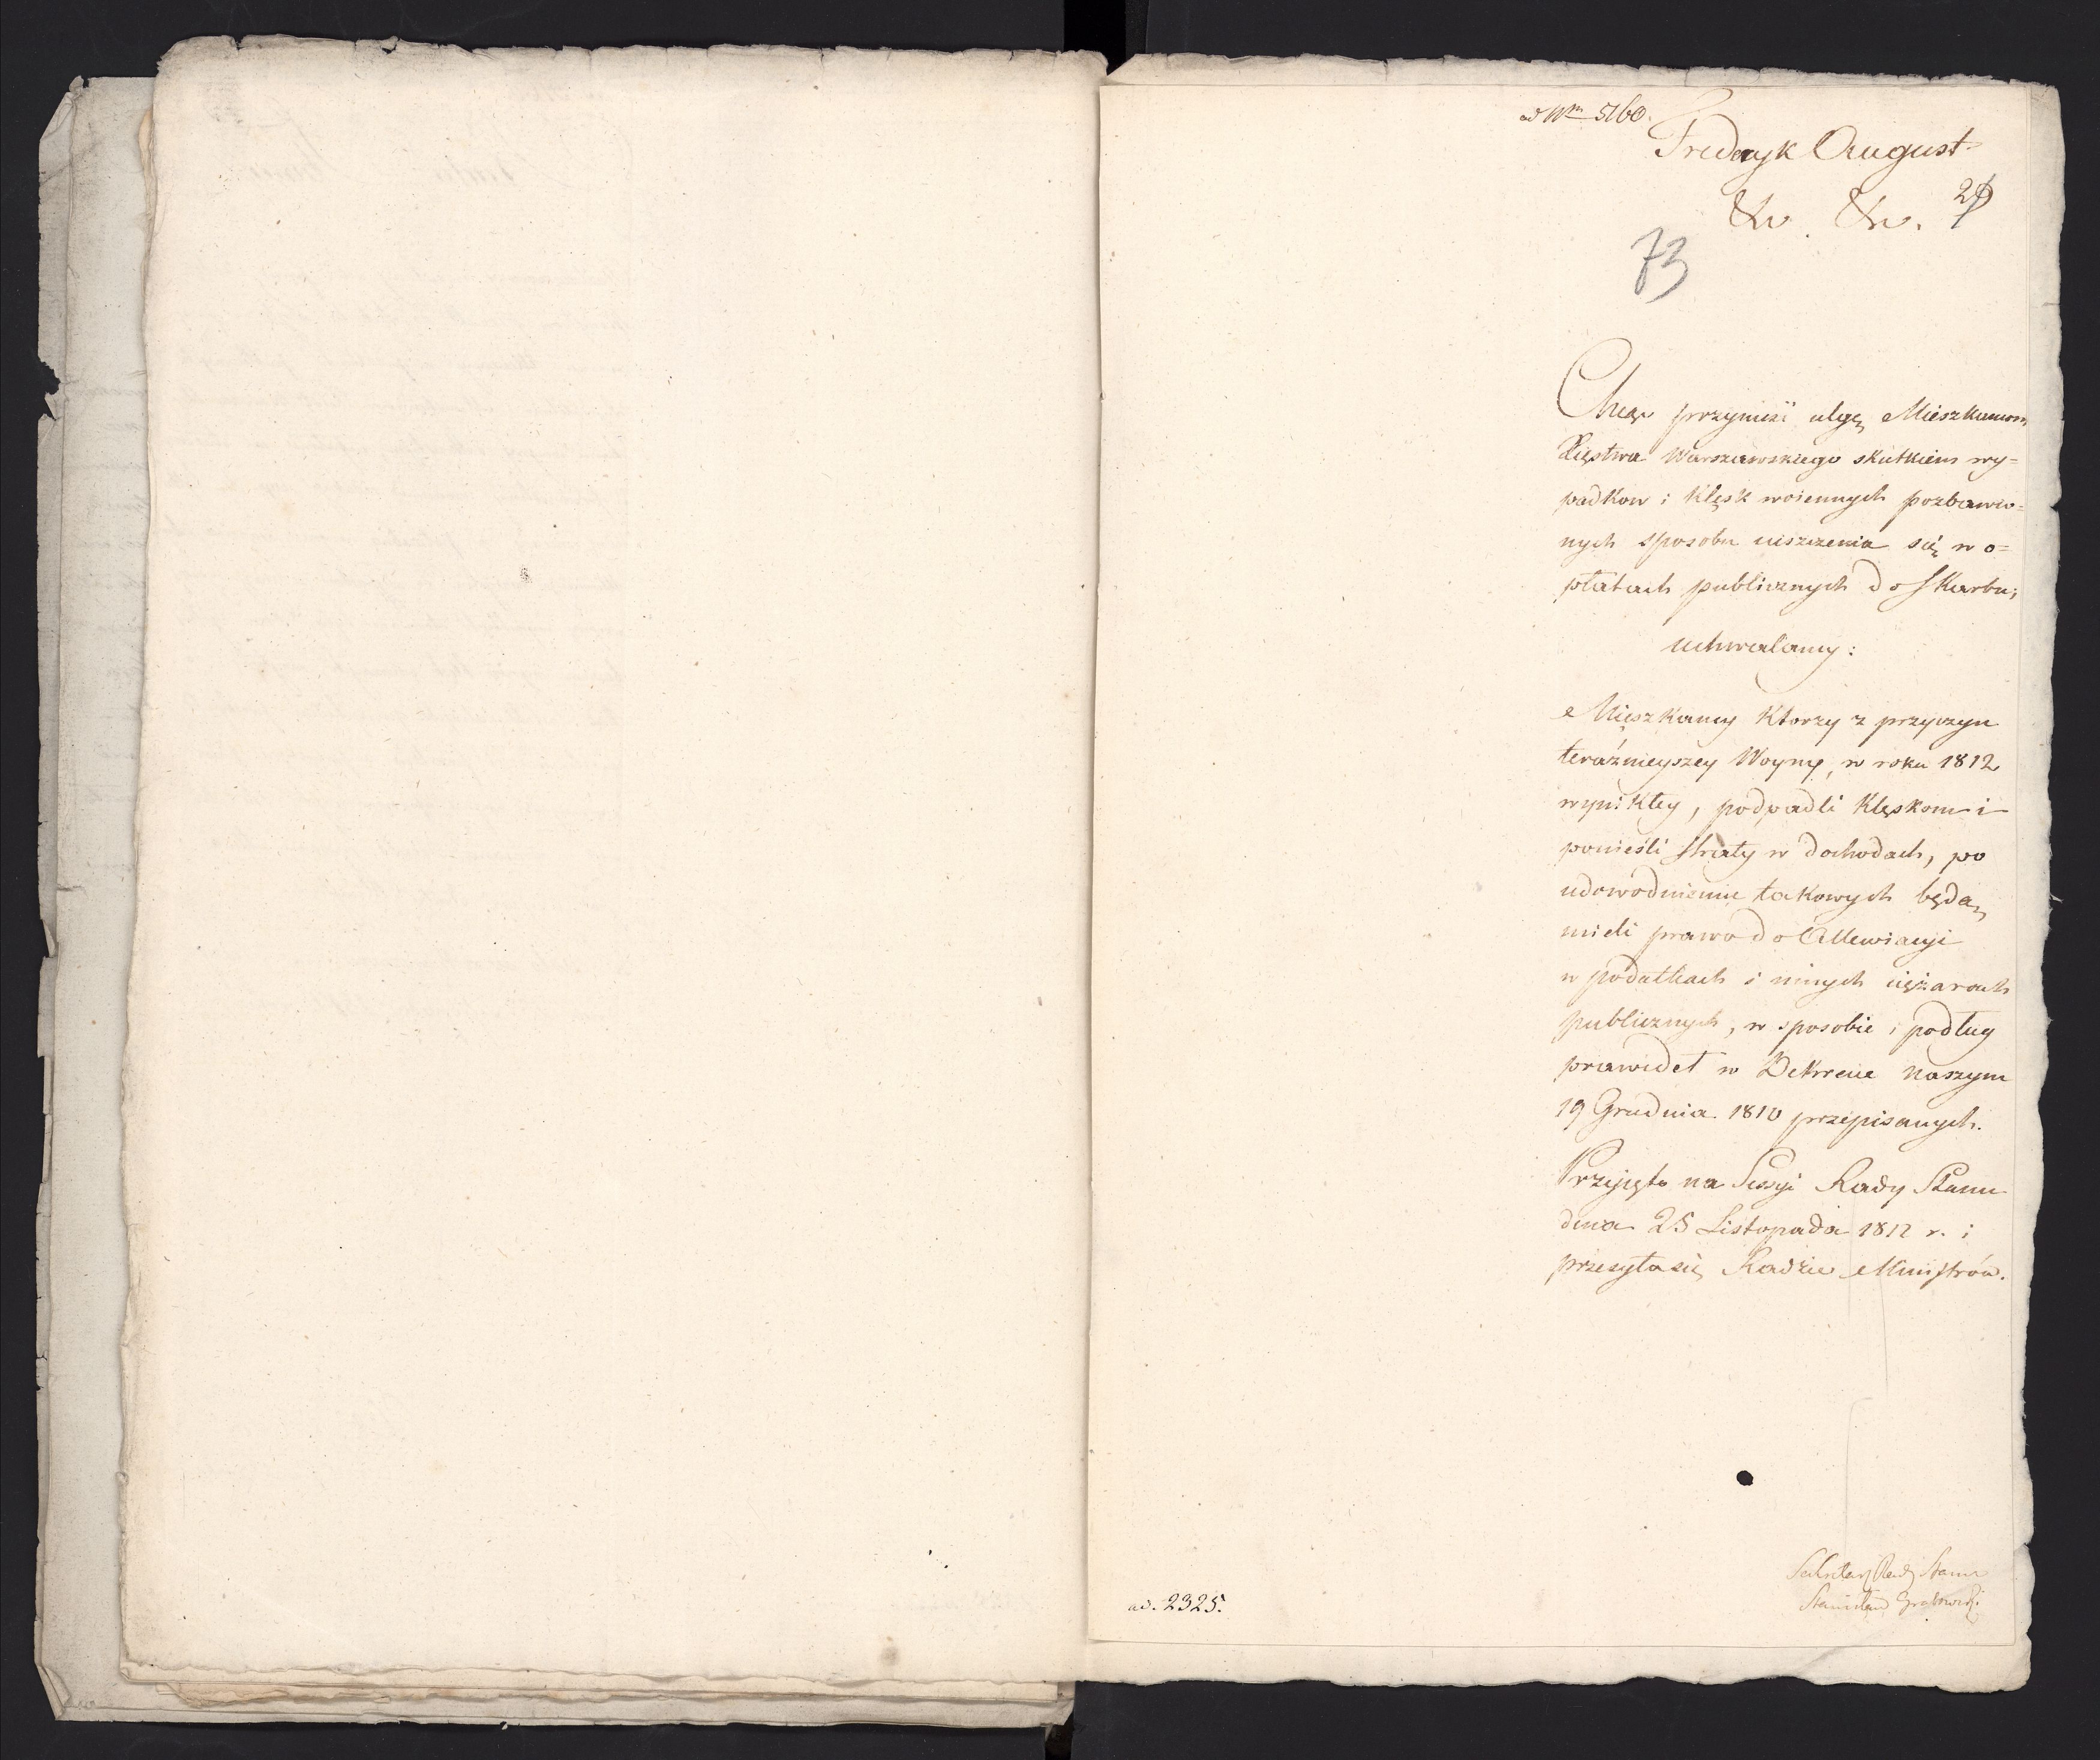 ad Nm 5160.
Fryderyk August
&c. &c. 29
73
Chcąc przynieść ulgę Mieszkańcom
Xięstwa Warszawskiego skutkiem wy=
padkow i klęsk woiennych pozbawio=
nych sposobu uiszczenia się w o=
płatach publicznych do Skarbu;
uchwalamy:
Mieszkańcy ktorzy z przyczyn
teraźnieyszey Woyny, w roku 1812
wynikłey, podpadli klęskom i
ponieśli straty w dochodach, po
udowodnieniu takowych będą
mieli prawo do Allewiacyi
w podatkach i innych ciężarach
publicznych, w sposobie i podług
prawideł w Dekrecie naszym
19 Grudnia 1810 przepisanych.
Przyjęto na Sessyi Rady Stanu
dnia 25 Listopada 1812 r. i
przesyła się Radzie Ministrów.
Sekretarz Rady Stanu
Stanisław Grabowski
ad. 2325.